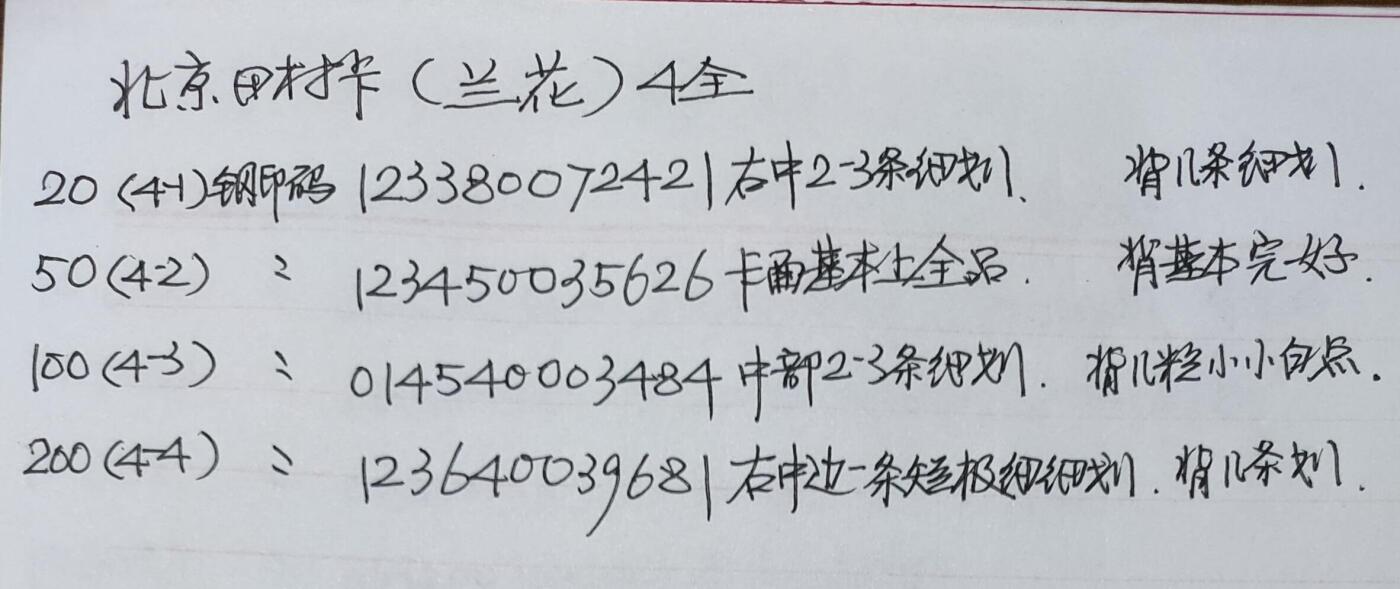 北京田村卡（兰花）4全
20（4-1）钢印码 123380072421 右中2-3条细划、 背几条细划.
50（4-2） 〃 123450035626 卡面基本上全品. 背基本完好.
100（4-3） 〃 014540003484 中部2-3条细划. 背几粒小小白点.
200（4-4） 〃 123640039681 右中边一条短极细细划. 背几条划.